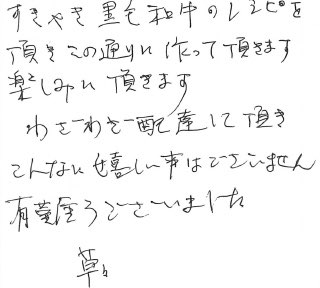 すきやき黒毛和牛のレシピを
頂きこの通りに作って頂きます
楽しみに頂きます
わざわざ配達して頂き
こんなに嬉しい事はございません
有難うございました
草々